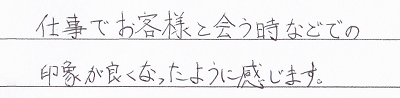 仕事でお客様と会う時などでの
印象が良くなったように感じます。